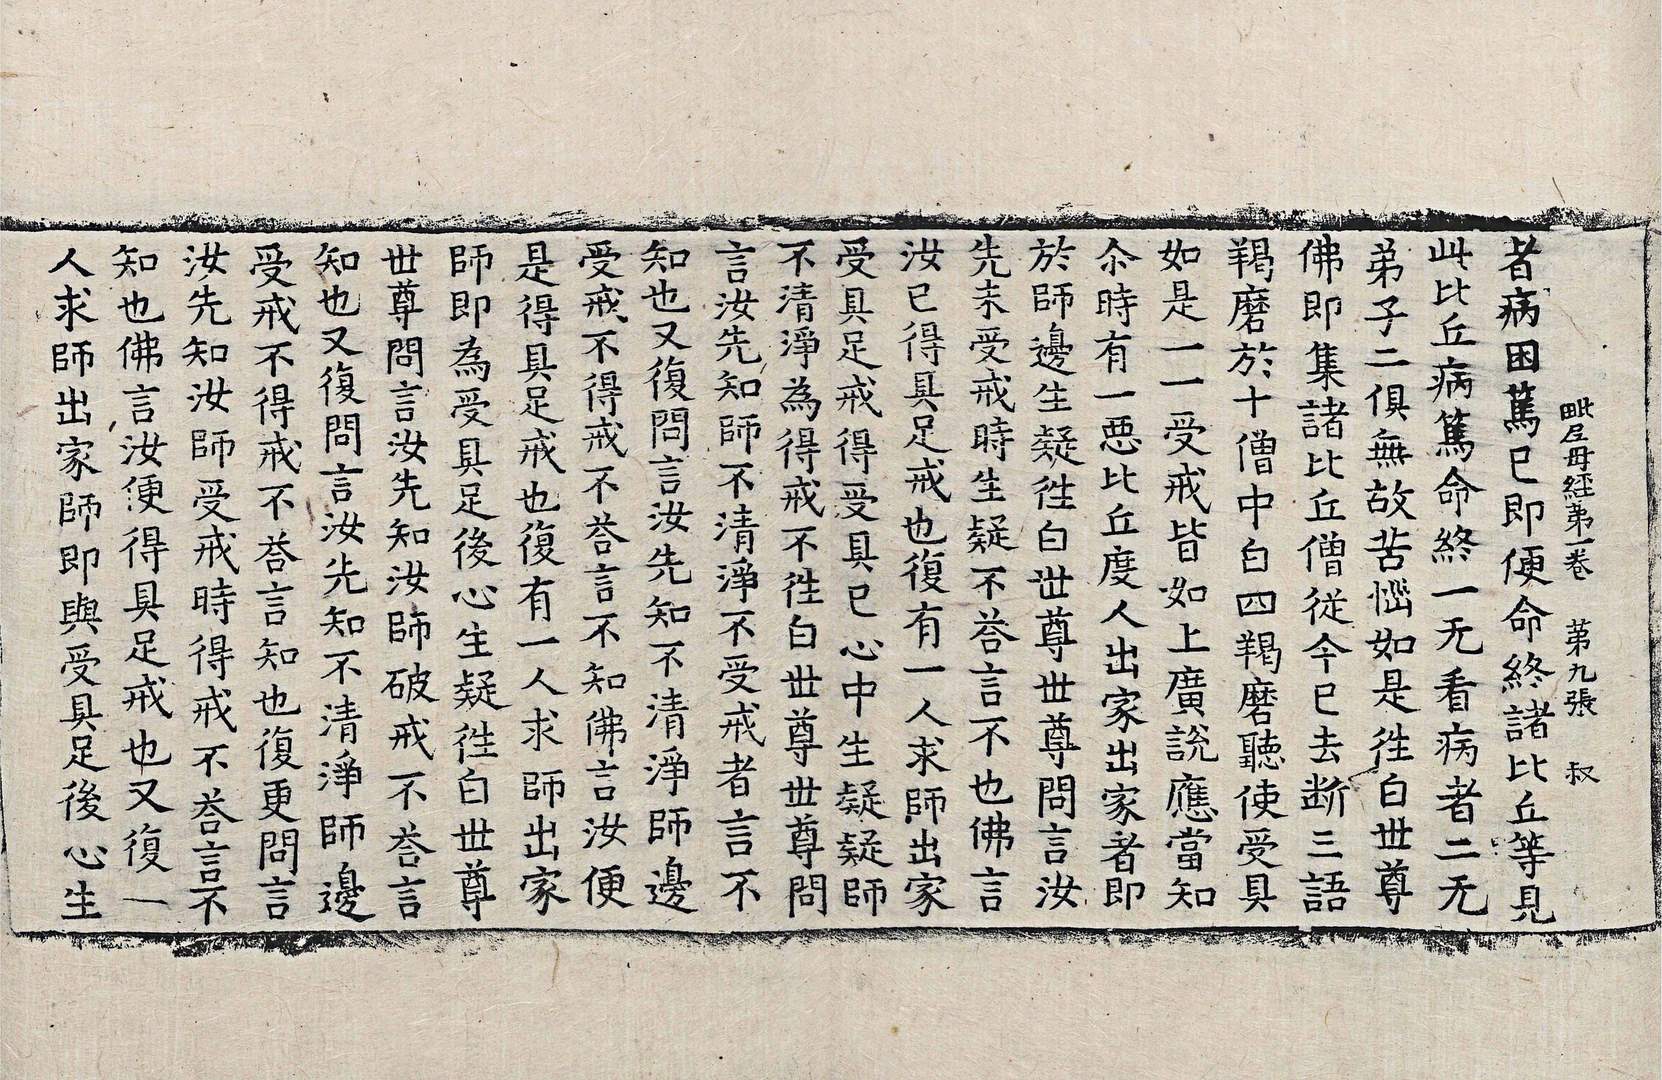 毗尼母經第一卷 第九張 叔
者病困篤已即便命終諸比丘等見
此比丘病篤命終一无看病者二无
弟子二俱無故苦惱如是徃白世尊
佛即集諸比丘僧從今已去断三語
羯磨於十僧中白四羯磨聽使受具
如是一一受戒皆如上廣說應當知
尒時有一惡比丘度人出家出家者即
於師邊生疑徃白世尊世尊問言汝
先未受戒時生疑不荅言不也佛言
汝已得具足戒也復有一人求師出家
受具足戒得受具已心中生疑疑師
不清淨為得戒不徃白世尊世尊問
言汝先知師不清淨不受戒者言不
知也又復問言汝先知不清淨師邊
受戒不得戒不荅言不知佛言汝便
是得具足戒也復有一人求師出家
師即為受具足後心生疑徃白世尊
世尊問言汝先知汝師破戒不荅言
知也又復問言汝先知不清淨師邊
受戒不得戒不荅言知也復更問言
汝先知汝師受戒時得戒不荅言不
知也佛言汝便得具足戒也又復一
人求師出家師即與受具足後心生